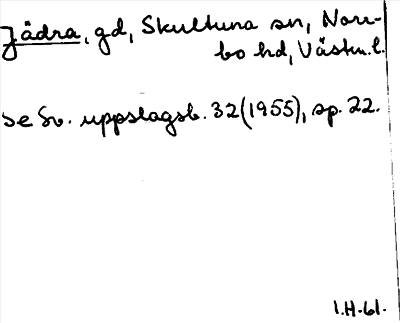 Jädra, gd, Skultuna sn, Norr-
bo hd, Västm.l.
se Sv. uppslagsb. 32(1955), sp. 22.
1.H.61.